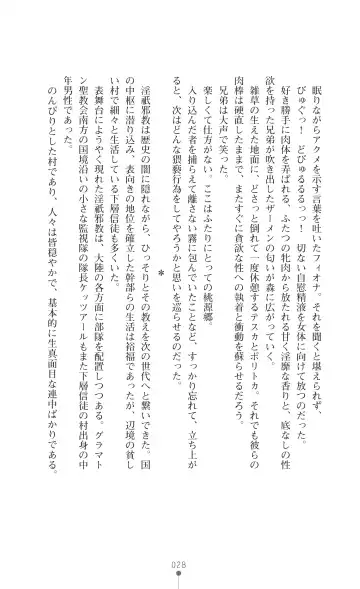 眠りながらアクメを示す言葉を吐いたフィオナ。それを聞くと堪えられず、
びゅぐっ！　どびゅるるるっ！　切ない自慰精液を女体に向けて放つのだった。
好き勝手に肉体を弄ばれる、ふたつの牝肉から放たれる甘く淫靡な香りと、底なしの性
欲を持った兄弟が吹き出したザーメンの匂いが森に広がっていく。
雑草の生えた地面に、どさっと倒れて一度休憩するテスカとポリトカ。それでも彼らの
肉棒は硬直したままで、またすぐに貪欲な性への執着と衝動を蘇らせるだろう。
兄弟は大声で笑った。
楽しくて仕方がない。ここはふたりにとっての桃源郷――
入り込んだ者を捕らえて離さない霧に包んでいたことなど、すっかり忘れて、立ち上が
ると、次はどんな猥褻行為をしてやろうかと思いを巡らせるのだった。
＊
淫祇邪教は歴史の闇に隠れながら、ひっそりとその教えを次の世代へと繋いできた。国
の中枢に潜り込み、表向きの地位を確立した幹部らの生活は裕福であったが、辺境の貧し
い村で細々と生活している下層信徒も多くいた。
表舞台にようやく現れた淫祇邪教は、大陸の各方面に部隊を配置しつつある。グラマト
ン聖教会南方の国境沿いの小さな監視隊の隊長ケッツアールもまた下層信徒の村出身の中
年男性であった。
のんびりとした村であり、人々は皆穏やかで、基本的に生真面目な連中ばかりである。
028